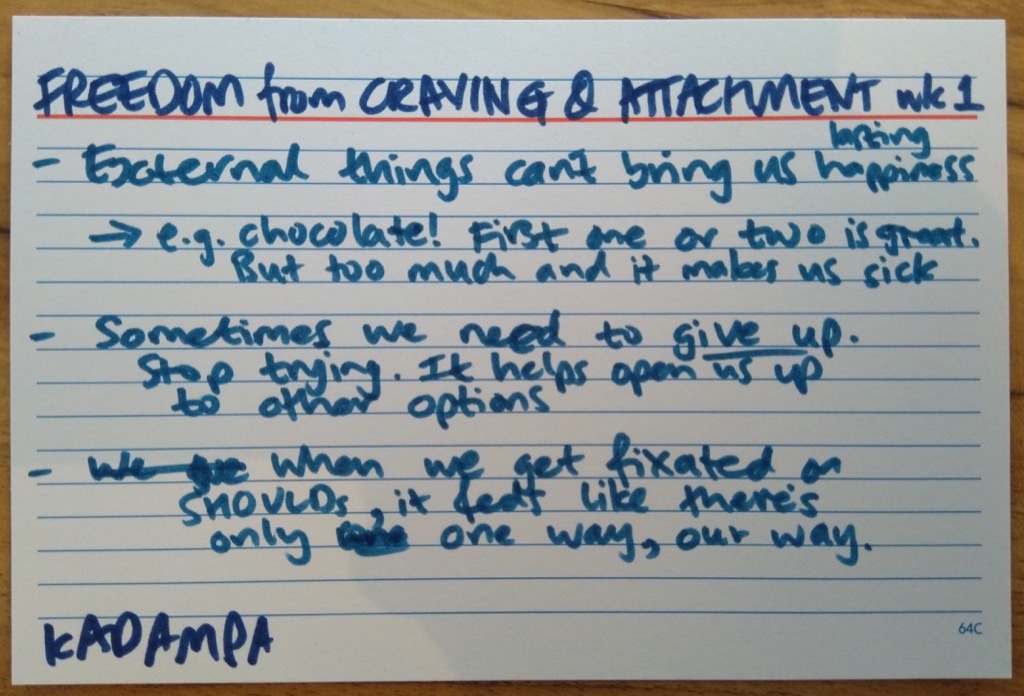 FREEDOM from CRAVING & ATTACHMENT wk 1
- External things can't bring us lasting happiness
→ e.g. chocolate! First one or two is great.
But too much and it makes us sick
- Sometimes we need to give up.
Stop trying. It helps open us up
to other options
- when we get fixated on
SHOULDs, it feels like there's
only one way, our way.
KADAMPA
64C